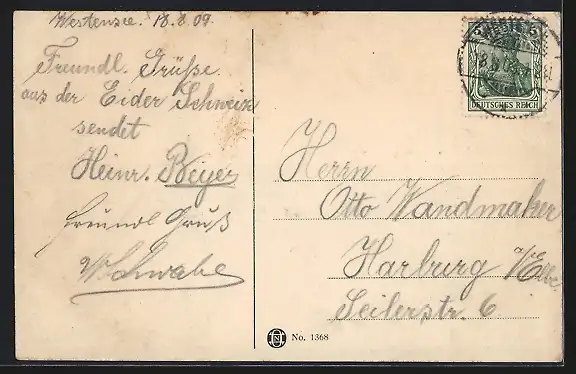 Westensee. 18.8.09.
Freundl. Grüße.
aus der Eider Schweiz
sendet
Heinr. Beyer
freundl Gruß
W Schwabe
5 5
DEUTSCHES REICH
Herrn
Otto Wandmaker
Harburg a/Elbe
Seilerstr. 6
No. 1368